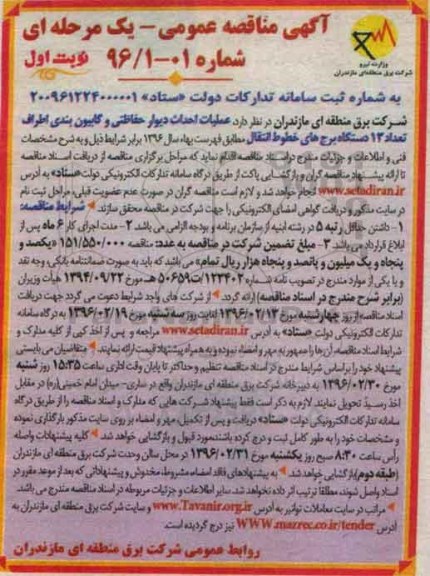 آگهی مناقصه عمومی - یک مرحله ای
شماره ۰۱-۹۶/۱
نوبت اول
وزارت نیرو
شرکت برق منطقه‌ای مازندران
به شماره ثبت سامانه تدارکات دولت «ستاد» ۲۰۰۹۶۱۲۲۴۰۰۰۰۰۱
شرکت برق منطقه ای مازندران در نظر دارد عملیات احداث دیوار حفاظتی و گابیون بندی اطراف
تعداد ۱۳ دستگاه برج های خطوط انتقال مطابق فهرست بهاء سال ۱۳۹۶ برابر شرایط ذیل و به شرح مشخصات
فنی و اطلاعات و جزئیات مندرج در اسناد مناقصه اقدام نماید که مراحل برگزاری مناقصه از دریافت اسناد مناقصه
تا ارائه پیشنهاد مناقصه گران و بازگشایی پاکت از طریق درگاه سامانه تدارکات الکترونیکی دولت «ستاد» به آدرس
www.setadiran.ir انجام خواهد شد و لازم است مناقصه گران در صورت عدم عضویت قبلی، مراحل ثبت نام
در سایت مذکور و دریافت گواهی امضای الکترونیکی را جهت شرکت در مناقصه محقق سازند. شرایط مناقصه:
۱- داشتن حداقل رتبه ۵ در رشته ابنیه از سازمان برنامه و بودجه الزامی می باشد. ۲- مدت اجرای کار ۶ ماه پس از
ابلاغ قرارداد می باشد. ۳- مبلغ تضمین شرکت در مناقصه به عدد: مناقصه ۱۵۱/۵۵۰/۰۰۰ «یکصد و
پنجاه و یک میلیون و پانصد و پنجاه هزار ریال تمام» می باشد که باید به صورت ضمانتنامه بانکی، وجه نقد
و یا یکی از موارد مندرج در تصویب نامه شماره ۱۲۳۴۰۲/ت۵۰۶۵۹هـ مورخ ۱۳۹۴/۰۹/۲۲ هیأت وزیران
(برابر شرح مندرج در اسناد مناقصه) ارائه گردد. از شرکت های واجد شرایط دعوت می گردد جهت دریافت
اسناد مناقصه از روز چهارشنبه مورخ ۱۳۹۶/۰۲/۱۳ لغایت روز سه شنبه مورخ ۱۳۹۶/۰۲/۱۹ به درگاه سامانه
تدارکات الکترونیکی دولت «ستاد» به آدرس www.setadiran.ir مراجعه و پس از اخذ کپی از کلیه مدارک و
شرایط اسناد مناقصه، آن ها را ممهور به مهر و امضاء نموده و به همراه پیشنهاد قیمت ارائه نمایند. متقاضیان می بایستی
پیشنهاد خود را بر اساس شرایط مندرج در اسناد مناقصه تنظیم و حداکثر تا پایان وقت اداری ساعت ۱۵:۳۵ روز شنبه
مورخ ۱۳۹۶/۰۲/۳۰ به دبیرخانه شرکت برق منطقه ای مازندران واقع در ساری- میدان امام خمینی(ره) در مقابل
اخذ رسید تحویل نمایند. لازم به ذکر است فقط پیشنهاد شرکت هایی که مدارک و اسناد مناقصه را از طریق درگاه
سامانه تدارکات الکترونیکی دولت «ستاد» دریافت و پس از تکمیل، مهر و امضاء بر روی سایت مذکور بارگذاری نموده
و مشخصات خود را به طور کامل ثبت و درج کرده باشند مورد قبول و بازگشایی خواهد شد. کلیه پیشنهادات واصله
رأس ساعت ۸:۳۰ صبح روز یکشنبه مورخ ۱۳۹۶/۰۲/۳۱ در محل سالن وحدت شرکت برق منطقه ای مازندران
(طبقه دوم) بازگشایی خواهد شد. به پیشنهادهای فاقد امضاء، مشروط، مخدوش و پیشنهاداتی که بعد از موعد مقرر در
اسناد واصل شوند، مطلقا ترتیب اثر داده نخواهد شد. سایر اطلاعات و جزئیات مربوطه در اسناد مناقصه مندرج می باشد.
مراتب در سایت معاملات توانیر به آدرس www.Tavanir.org.ir و سایت شرکت برق منطقه ای مازندران به
آدرس www.mazrec.co.ir/tender نیز درج گردیده است.
روابط عمومی شرکت برق منطقه ای مازندران